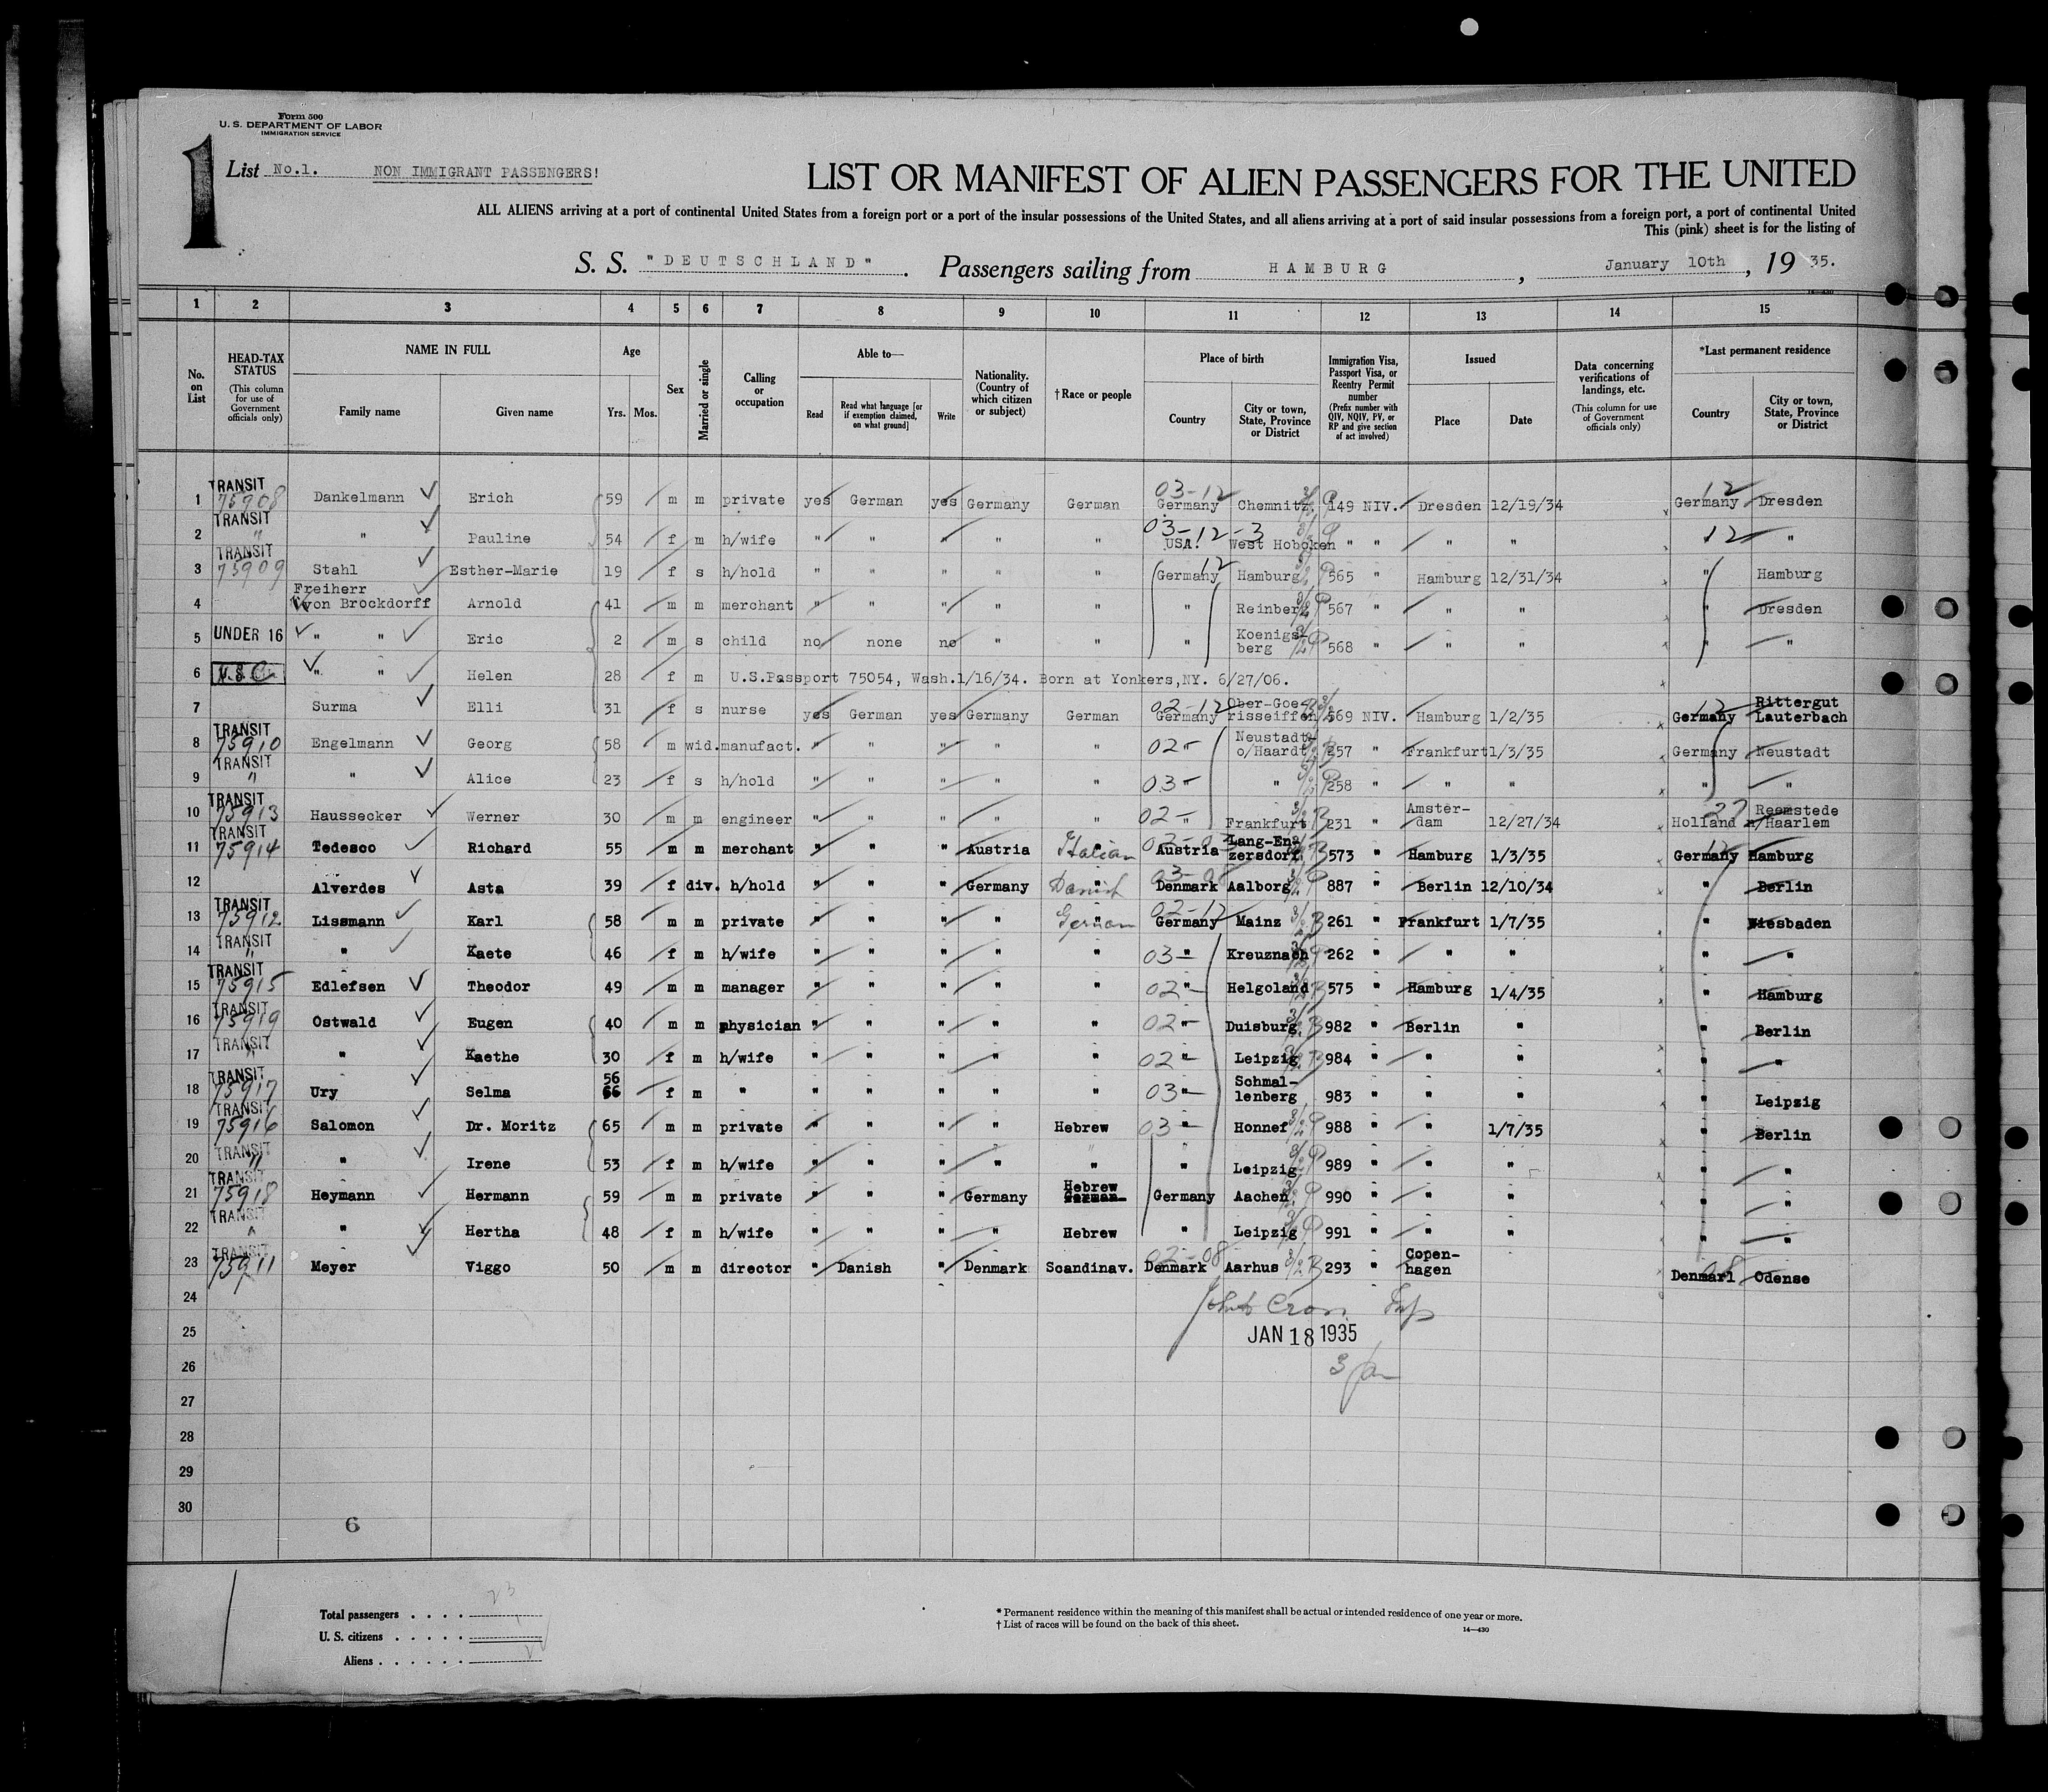 Form 500
U. S. DEPARTMENT OF LABOR
IMMIGRATION SERVICE
1
List No.1. NON IMMIGRANT PASSENGERS!
LIST OR MANIFEST OF ALIEN PASSENGERS FOR THE UNITED
ALL ALIENS arriving at a port of continental United States from a foreign port or a port of the insular possessions of the United States, and all aliens arriving at a port of said insular possessions from a foreign port, a port of continental United
This (pink) sheet is for the listing of
S. S. "DEUTSCHLAND". Passengers sailing from HAMBURG, January 10th, 19 35.
14-430
1 2 3 4 5 6 7 8 9 10 11 12 13 14 15
No. on List
HEAD-TAX STATUS (This column for use of Government officials only)
NAME IN FULL Family name Given name
Age Yrs. Mos.
Sex
Married or single
Calling or occupation
Able to— Read Read what language [or if exemption claimed, on what ground] Write
Nationality. (Country of which citizen or subject)
†Race or people
Place of birth Country City or town, State, Province or District
Immigration Visa, Passport Visa, or Reentry Permit number (Prefix number with QIV, NQIV, PV, or RP and give section of act involved)
Issued Place Date
Data concerning verifications of landings, etc. (This column for use of Government officials only)
*Last permanent residence Country City or town, State, Province or District
1 TRANSIT 75908 Dankelmann Erich 59 m m private yes German yes Germany German 03-12 Germany Chemnitz P 149 NIV. Dresden 12/19/34 12 Germany Dresden
2 TRANSIT " " Pauline 54 f m h/wife " " " " " 03-12-3 USA. West Hoboken P " " " " 12 "
3 TRANSIT 75909 Stahl Esther-Marie 19 f s h/hold " " " " " 12 Germany Hamburg P 565 " Hamburg 12/31/34 " Hamburg
4 Freiherr von Brockdorff Arnold 41 m m merchant " " " " " " Reinberg P 567 " " " " Dresden
5 UNDER 16 " " Eric 2 m s child no none no " " " Koenigs-berg P 568 " " " " "
6 U.S.C. " " Helen 28 f m U.S.Passport 75054, Wash.1/16/34. Born at Yonkers,NY. 6/27/06.
7 Surma Elli 31 f s nurse yes German yes Germany German 02-12 Germany Ober-Goe-risseiffen 569 NIV. Hamburg 1/2/35 12 Germany Rittergut Lauterbach
8 TRANSIT 75910 Engelmann Georg 58 m wid. manufact. " " " " " 02- " Neustadt-o/Haardt 257 " Frankfurt 1/3/35 Germany Neustadt
9 TRANSIT " " Alice 23 f s h/hold " " " " " 03- " " P 258 " " " " "
10 TRANSIT 75913 Haussecker Werner 30 m m engineer " " " " " 02- " Frankfurt 231 " Amster-dam 12/27/34 27 Holland Reemstede n/Haarlem
11 TRANSIT 75914 Tedesco Richard 55 m m merchant " " " Austria Italian Austria Lang-En-zersdorf 573 " Hamburg 1/3/35 12 Germany Hamburg
12 Alverdes Asta 39 f div. h/hold " " " Germany Danish Denmark Aalborg P 887 " Berlin 12/10/34 " Berlin
13 TRANSIT 75912 Lissmann Karl 58 m m private " " " " German 02-12 Germany Mainz 261 " Frankfurt 1/7/35 " Wiesbaden
14 TRANSIT " " Kaete 46 f m h/wife " " " " " 03- " Kreuznach P 262 " " " " "
15 TRANSIT 75915 Edlefsen Theodor 49 m m manager " " " " " 02- " Helgoland 575 " Hamburg 1/4/35 " Hamburg
16 TRANSIT 75919 Ostwald Eugen 40 m m physician " " " " " 02- " Duisburg 982 " Berlin " " Berlin
17 TRANSIT " " Kaethe 30 f m h/wife " " " " " 02- " Leipzig 984 " " " " "
18 TRANSIT 75917 Ury Selma 56 66 f m " " " " " " 03- " Schmal-lenberg 983 " " " " Leipzig
19 TRANSIT 75916 Salomon Dr. Moritz 65 m m private " " " " Hebrew 03- " Honnef P 988 " " 1/7/35 " Berlin
20 TRANSIT " " Irene 53 f m h/wife " " " " " " Leipzig P 989 " " " " "
21 TRANSIT 75918 Heymann Hermann 59 m m private " " " Germany Hebrew German Germany Aachen P 990 " " " " "
22 TRANSIT " Hertha 48 f m h/wife " " " " Hebrew " Leipzig P 991 " " " " "
23 TRANSIT 75911 Meyer Viggo 50 m m director " Danish " Denmark Scandinav. 02-08 Denmark Aarhus 293 " Copen-hagen 08 Denmarl Odense
24
25
JAN 18 1935
26
27
28
29
30
6
Total passengers . . . . 23
U. S. citizens . . . . . 1
Aliens . . . . . .
* Permanent residence within the meaning of this manifest shall be actual or intended residence of one year or more.
† List of races will be found on the back of this sheet.
14—430